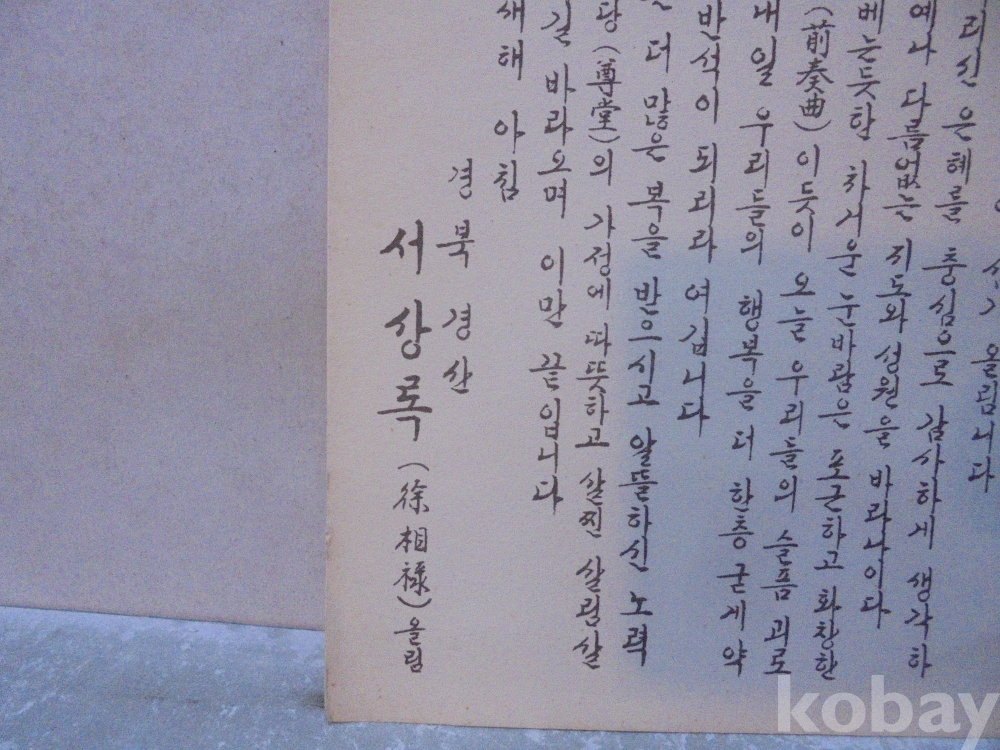 신가 올립니다
리신 은혜를 충심으로 감사하게 생각하
예나 다름없는 지도와 성원을 바라나이다
베는듯한 차거운 눈바람은 포근하고 화창한
(前奏曲)이듯이 오늘 우리들의 슬픔 괴로
내일 우리들의 행복을 더 한층 굳게 약
반석이 되리라 여깁니다
더 많은 복을 받으시고 알뜰하신 노력
당(尊堂)의 가정에 따뜻하고 살찐 살림살
길 바라오며 이만 끝입니다
새해 아침
경북 경산
서상록(徐相祿)올림
kobay